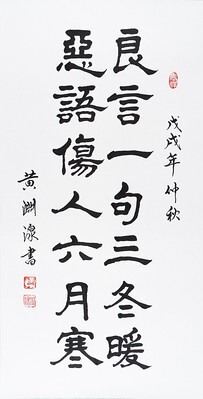 戊戌年仲秋
良言一句三冬暖
惡語傷人六月寒
黄淵源書